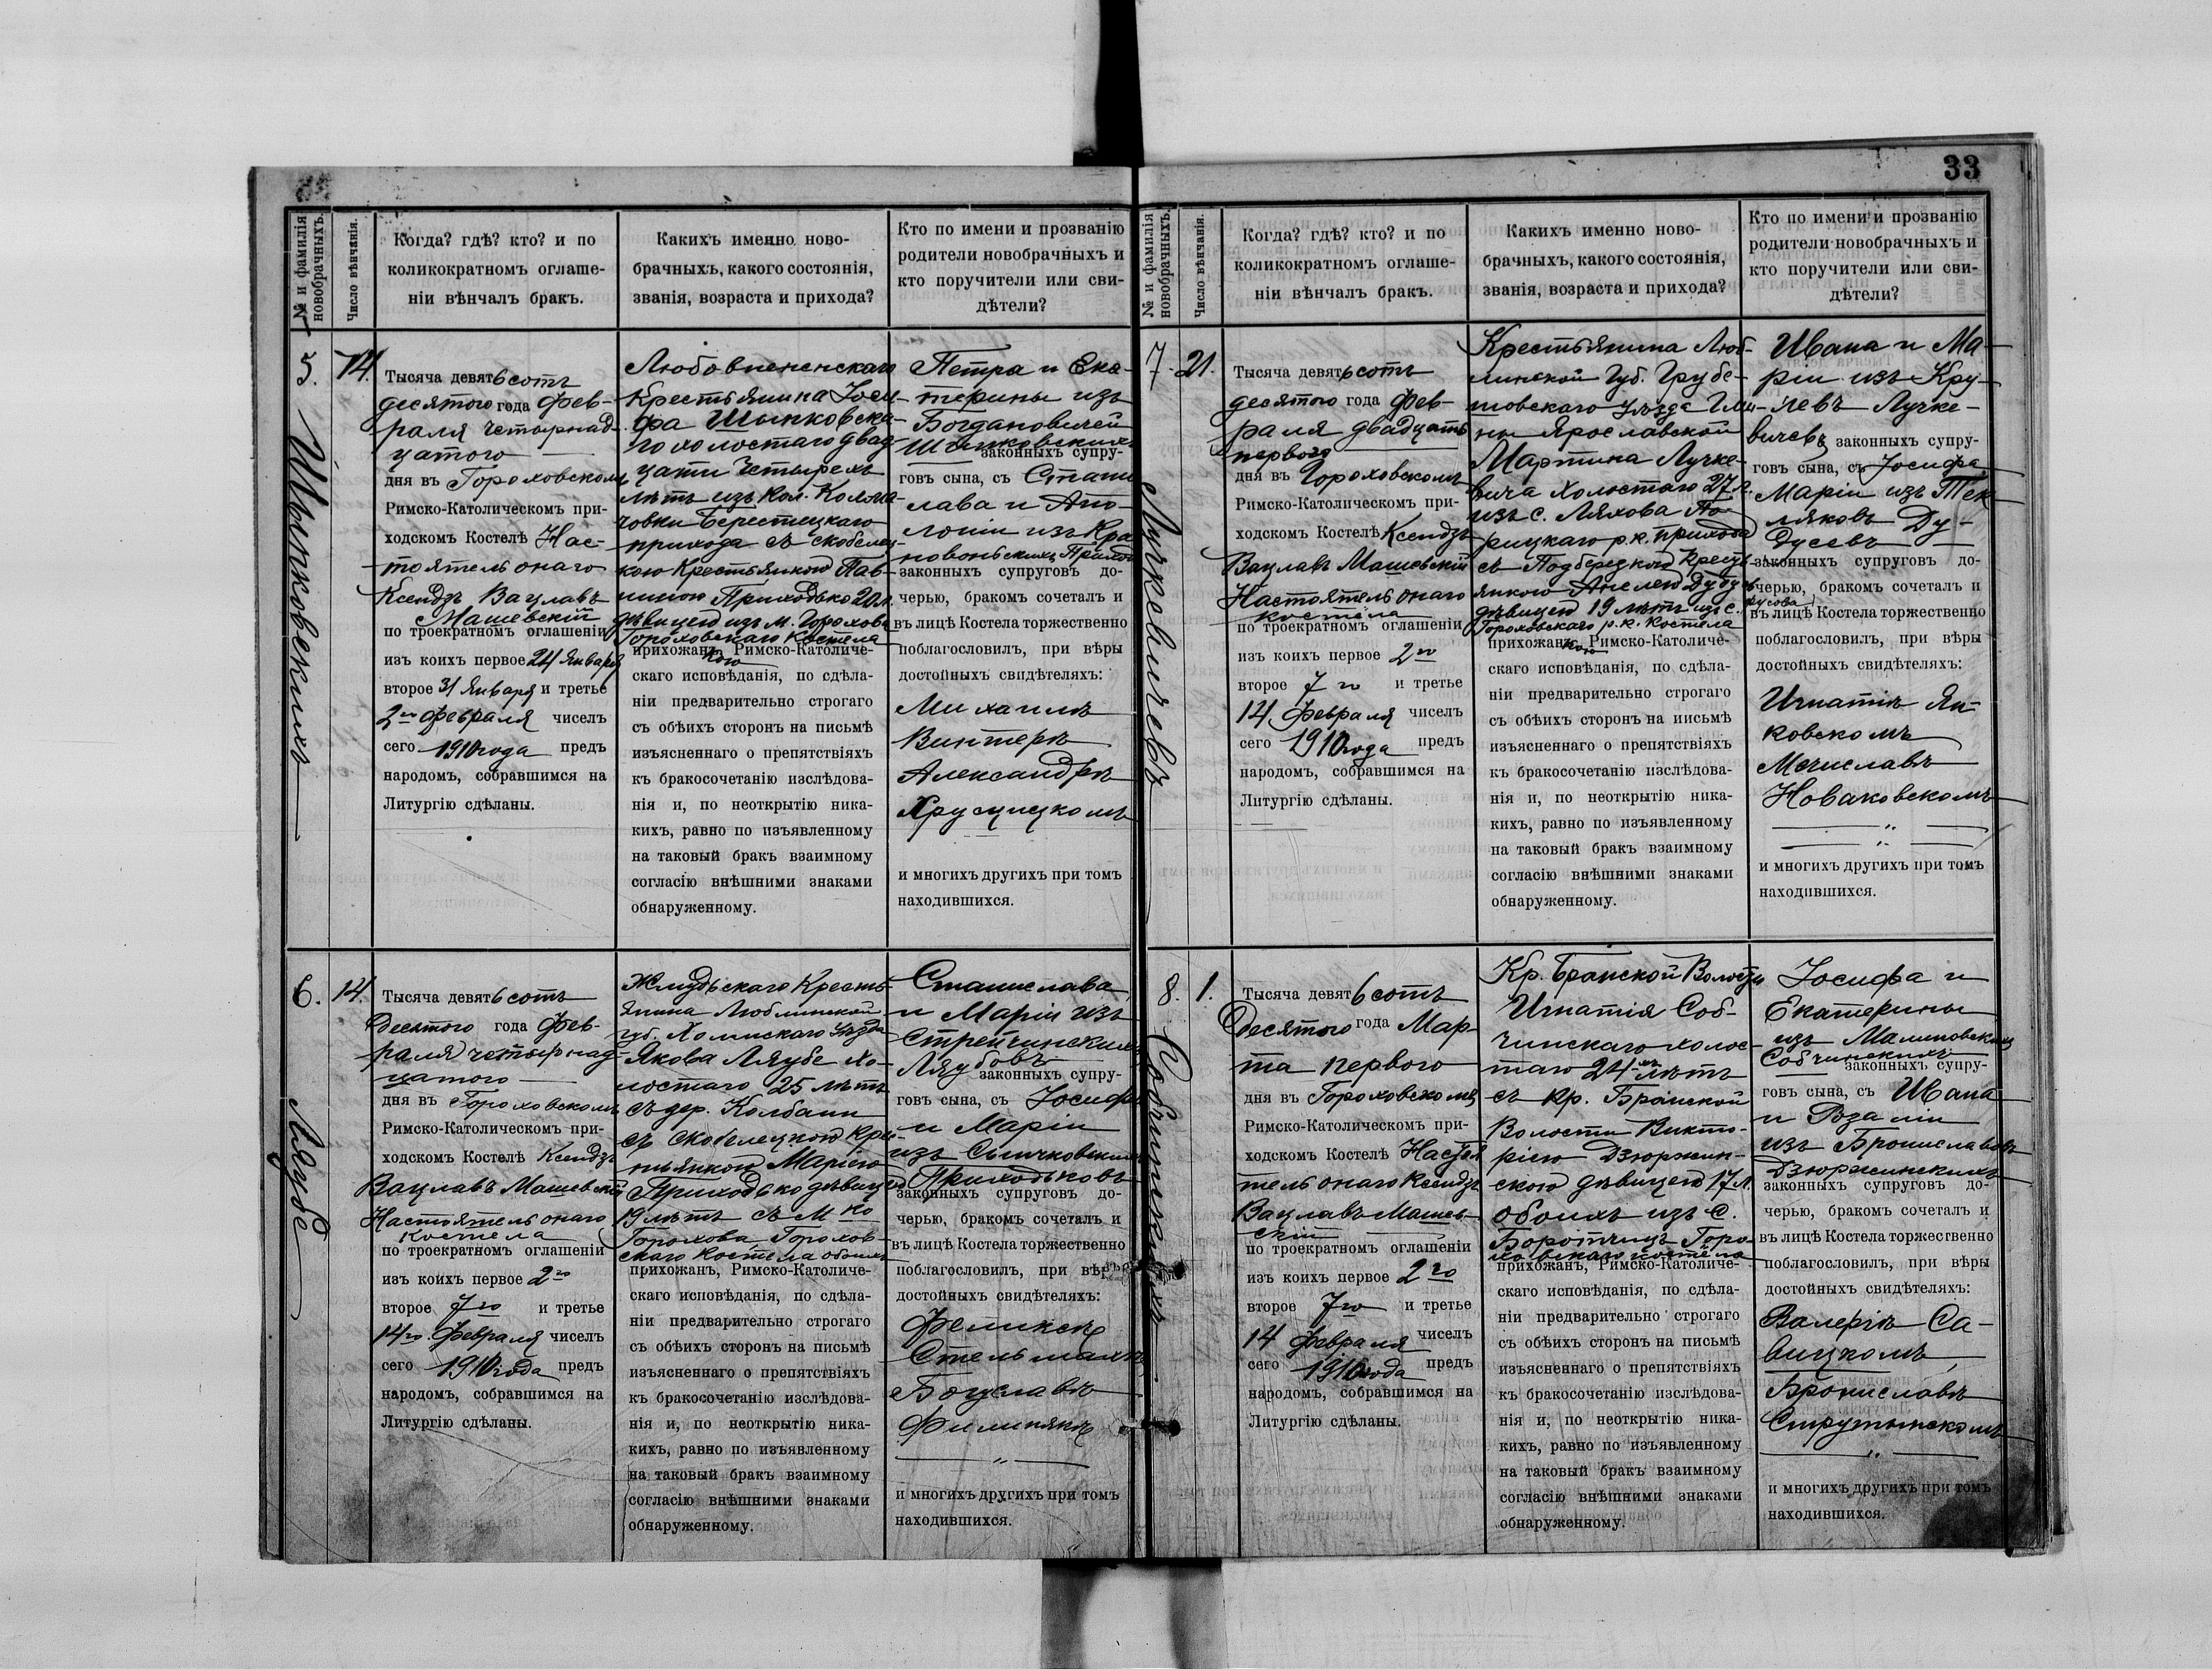 № и фамилія новобрачныхъ.
Число вѣнчанія.
Когда? гдѣ? кто? и по
коликократномъ оглаше-
ніи вѣнчалъ бракъ.
Какихъ именно ново-
брачныхъ, какого состоянія,
званія, возраста и прихода?
Кто по имени и прозванію
родители новобрачныхъ и
кто поручители или сви-
дѣтели?
5.
Шынковскихъ
14.
Тысяча девятьсотъ
десятого года Фев-
раля четырнад-
цатого
дня въ Гороховскомъ
Римско-Католическомъ при-
ходскомъ Костелѣ Нас-
тоятель онаго
Ксендзъ Вацлавъ
Машевскій
по троекратномъ оглашеніи
изъ коихъ первое 24 Января
второе 31 Января и третье
2го Февраля чиселъ
сего 1910 года предъ
народомъ, собравшимся на
Литургію сдѣланы.
Крестьянина Іоси-
фа Шынковска-
го холостаго двад-
цати четырехъ
лѣтъ изъ кол.
Берестецкаго
прихода съ Скобелец-
кою Крестьянкою Пав-
линою Приходько 20 л.
дѣвицею изъ м. Горохова
Гороховскаго Костела
прихожанъ Римско-Католиче-
кою
скаго исповѣданія, по сдѣла-
ніи предварительно строгаго
съ обѣихъ сторонъ на письмѣ
изъясненнаго о препятствіяхъ
къ бракосочетанію изслѣдова-
нія и, по неоткрытію ника-
кихъ, равно по изъявленному
на таковый бракъ взаимному
согласію внѣшними знаками
обнаруженному.
Петра и Ека-
терины изъ
Богдановичей
Шынковскихъ
законныхъ супру-
говъ сына, съ Стани
слава и Апо-
лоніи изъ
законныхъ супруговъ до-
черью, бракомъ сочеталъ и
въ лицѣ Костела торжественно
поблагословилъ, при вѣры
достойныхъ свидѣтеляхъ:
Михаилѣ
Винтерѣ
Александрѣ
Хрусцицкомъ
и многихъ другихъ при томъ
находившихся.
6.
Ляубе
14.
Тысяча девятьсотъ
Десятого года Фев-
раля четырнад-
цатого
дня въ Гороховскомъ
Римско-Католическомъ при-
ходскомъ Костелѣ Ксендзъ
Вацлавъ Машевскій
Настоятель онаго
костела
по троекратномъ оглашеніи
изъ коихъ первое 2го
второе 7го и третье
14го Февраля чиселъ
сего 1910 года предъ
народомъ, собравшимся на
Литургію сдѣланы.
Жмудьскаго Кресть-
янина Люблинской
губ. Холмскаго уѣзда
Якова Ляубе хо-
лостаго 25 лѣтъ
съ дер. Колбани
съ Скобелецкою Крес-
тьянкою Маріею
Приходько дѣвицею
19 лѣтъ съ м ко
Горохова Горохов-
скаго Костела обоихъ
прихожанъ, Римско-Католиче-
скаго исповѣданія, по сдѣла-
ніи предварительно строгаго
съ обѣихъ сторонъ на письмѣ
изъясненнаго о препятствіяхъ
къ бракосочетанію изслѣдова-
нія и, по неоткрытію ника-
кихъ, равно по изъявленному
на таковый бракъ взаимному
согласію внѣшними знаками
обнаруженному.
Станислава
и Маріи изъ
Стрепчинскихъ
Ляубовъ
законныхъ супру-
говъ сына, съ Іосифа
и Маріи
изъ
Приходьковъ
законныхъ супруговъ до-
черью, бракомъ сочеталъ и
въ лицѣ Костела торжественно
поблагословилъ, при вѣры
достойныхъ свидѣтеляхъ:
Феликсѣ
Стельмахѣ
Богуславѣ
Филипякѣ
и многихъ другихъ при томъ
находившихся.
33
№ и фамилія новобрачныхъ.
Число вѣнчанія.
Когда? гдѣ? кто? и по
коликократномъ оглаше-
ніи вѣнчалъ бракъ.
Какихъ именно ново-
брачныхъ, какого состоянія,
званія, возраста и прихода?
Кто по имени и прозванію
родители новобрачныхъ и
кто поручители или сви-
дѣтели?
7.
Лучкевичевъ
21.
Тысяча девятьсотъ
десятого года Фев-
раля двадцать
первого
дня въ Гороховскомъ
Римско-Католическомъ при-
ходскомъ Костелѣ Ксендзъ
Вацлавъ Машевскій
Настоятель онаго
костела
по троекратномъ оглашеніи
изъ коихъ первое 2го
второе 7го и третье
14 Февраля чиселъ
сего 1910 года предъ
народомъ, собравшимся на
Литургію сдѣланы.
Крестьянина Люб-
линской Губ. Грубе-
шовскаго уѣзда Гми-
ны Ярославской
Мартина Лучке-
вича холостаго 27 л.
изъ с. Ляхова По-
рицкаго р.к. прихода
съ Подберецкою Кресть-
янкою Анелею Дудусъ
дѣвицею 19 лѣтъ изъ с.
Гороховскаго р.к. Костела
прихожанъ, Римско-Католиче-
кою
скаго исповѣданія, по сдѣла-
ніи предварительно строгаго
съ обѣихъ сторонъ на письмѣ
изъясненнаго о препятствіяхъ
къ бракосочетанію изслѣдова-
нія и, по неоткрытію ника-
кихъ, равно по изъявленному
на таковый бракъ взаимному
согласію внѣшними знаками
обнаруженному.
Ивана и Ма-
ріи изъ Кру-
левъ Лучке-
вичевъ законныхъ супру-
говъ сына, съ Іосифа
Маріи изъ
Ду-
дусевъ
законныхъ супруговъ до-
черью, бракомъ сочеталъ и
въ лицѣ Костела торжественно
поблагословилъ, при вѣры
достойныхъ свидѣтеляхъ:
Игнатіѣ Ян-
ковскомъ
Мечиславѣ
Новаковскомъ
и многихъ другихъ при томъ
находившихся.
8.
Собчинскихъ
1.
Тысяча девятьсотъ
Десятого года Мар-
та первого
дня въ Гороховскомъ
Римско-Католическомъ при-
ходскомъ Костелѣ Настоя
тель онаго Ксендзъ
Вацлавъ Машев-
скій
по троекратномъ оглашеніи
изъ коихъ первое 2го
второе 7го и третье
14 Февраля чиселъ
сего 1910 года предъ
народомъ, собравшимся на
Литургію сдѣланы.
Кр. Бранской Волости
Игнатія Соб-
чинскаго холос-
таго 24 лѣтъ
съ кр. Бранской
Волости Викто-
ріею Дзюржин-
скою дѣвицею 17 л.
обоихъ изъ с.
Боротчицъ Горо-
ховскаго костела
прихожанъ, Римско-Католиче-
скаго исповѣданія, по сдѣла-
ніи предварительно строгаго
съ обѣихъ сторонъ на письмѣ
изъясненнаго о препятствіяхъ
къ бракосочетанію изслѣдова-
нія и, по неоткрытію ника-
кихъ, равно по изъявленному
на таковый бракъ взаимному
согласію внѣшними знаками
обнаруженному.
Іосифа и
Екатерины
изъ Малиновскихъ
Собчинскихъ
законныхъ супру-
говъ сына, съ Ивана
и Розаліи
изъ Брониславовъ
Дзюржинскихъ
законныхъ супруговъ до-
черью, бракомъ сочеталъ и
въ лицѣ Костела торжественно
поблагословилъ, при вѣры
достойныхъ свидѣтеляхъ:
Валеріѣ Са-
вицкомъ
Брониславѣ
Струтынскомъ
и многихъ другихъ при томъ
находившихся.